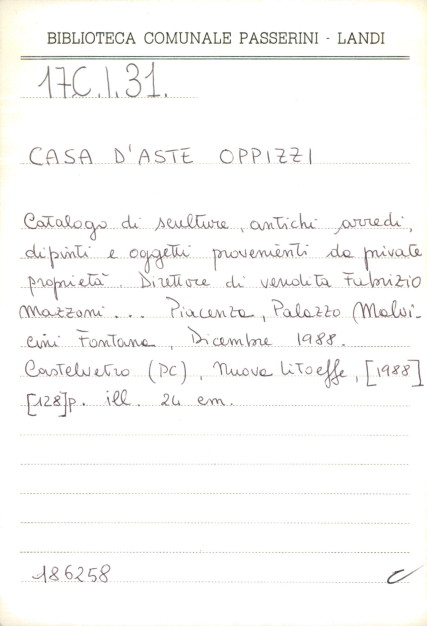 BIBLIOTECA COMUNALE PASSERINI - LANDI
17C.I.31.
CASA D'ASTE OPPIZZI
Catalogo di sculture, antichi arredi,
dipinti e oggetti provenienti da private
proprietà. Direttore di vendita Fabrizio
Mazzoni... Piacenza, Palazzo Malvi-
cini Fontana, Dicembre 1988.
Castelvetro (PC), Nuova Litoeffe, [1988]
[128]p. ill. 24 cm.
186258